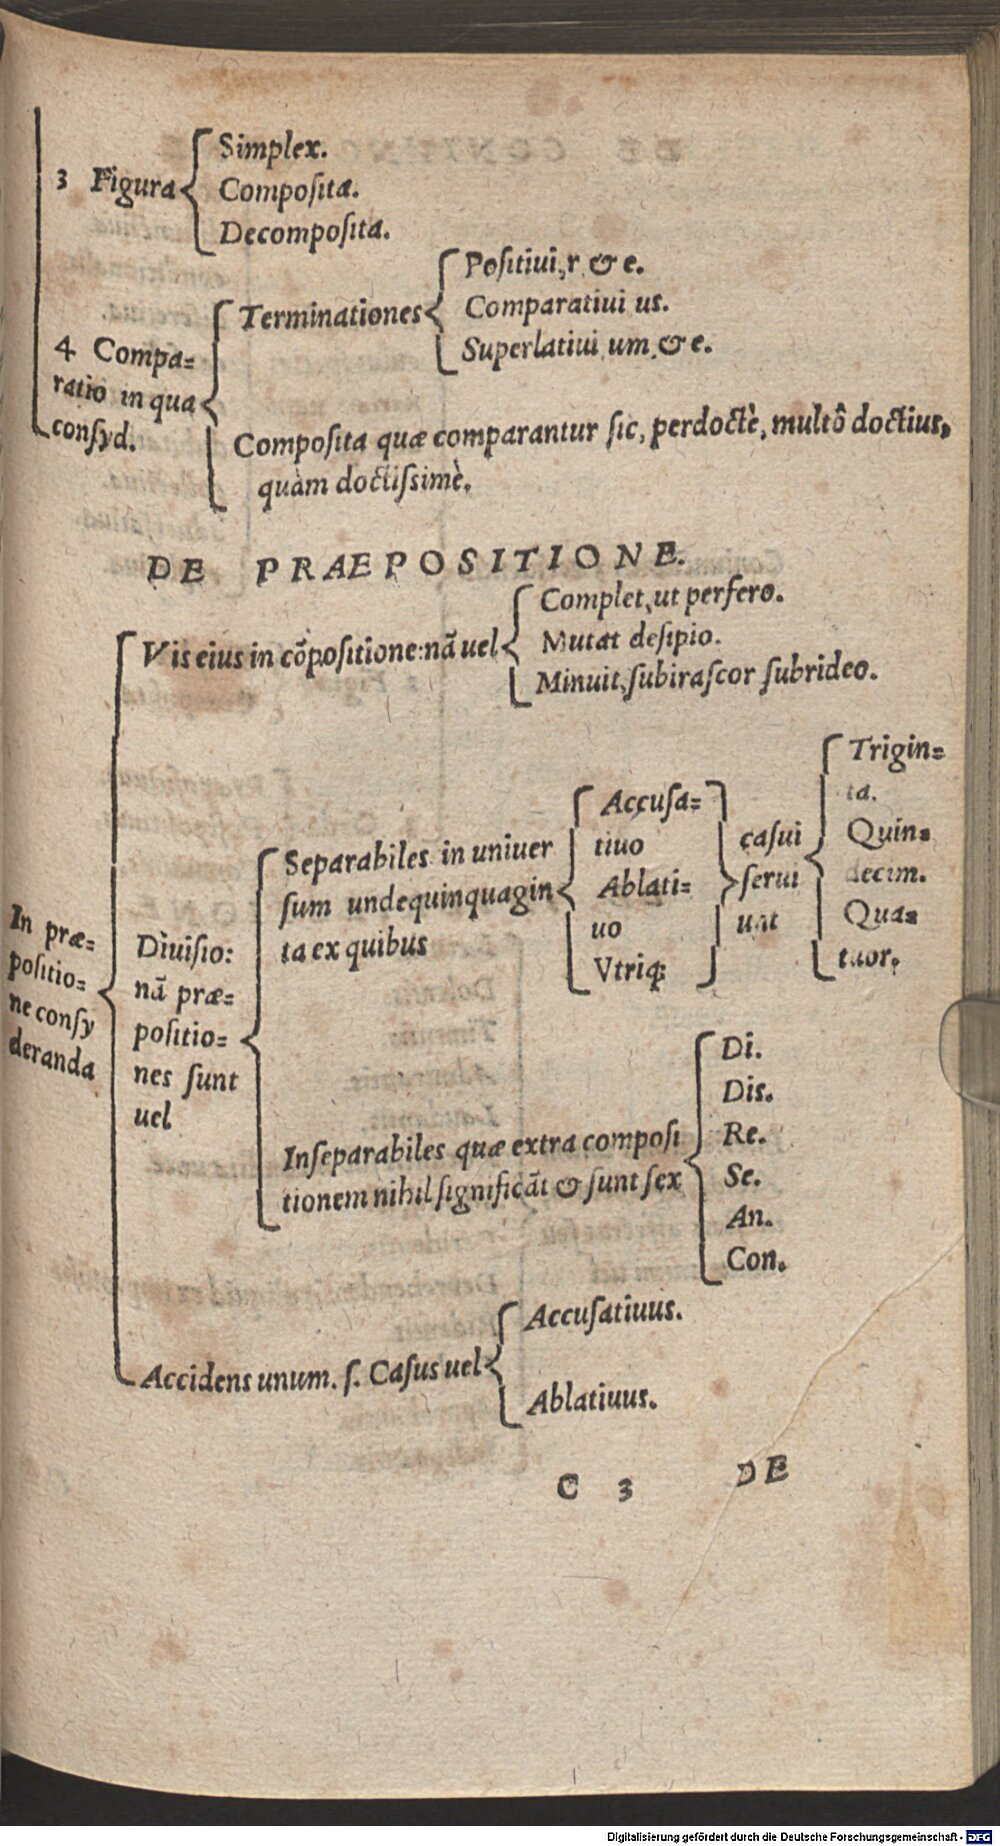 3 Figura
Simplex.
Composita.
Decomposita.
4 Compa=
ratio in qua
consyd.
Terminationes
Positiui, r & e.
Comparatiui us.
Superlatiui um, & e.
Composita quæ comparantur sic, perdoctè, multô doctius,
quàm doctissimè.
DE PRAEPOSITIONE.
In præ=
positio=
ne consy
deranda
Vis eius in cõpositione: nã uel
Complet, ut perfero.
Mutat desipio.
Minuit, subirascor subrideo.
Diuisio:
nã præ=
positio=
nes sunt
uel
Separabiles in uniuer
sum undequinquagin
ta ex quibus
Accusa=
tiuo
Ablati=
uo
Vtriq;
casui
serui
unt
Trigin=
ta.
Quin=
decim.
Qua=
tuor.
Inseparabiles quæ extra composi
tionem nihil significãt & sunt sex
Di.
Dis.
Re.
Se.
An.
Con.
Accidens unum. s. Casus uel
Accusatiuus.
Ablatiuus.
C 3 DE
Digitalisierung gefördert durch die Deutsche Forschungsgemeinschaft - DFG